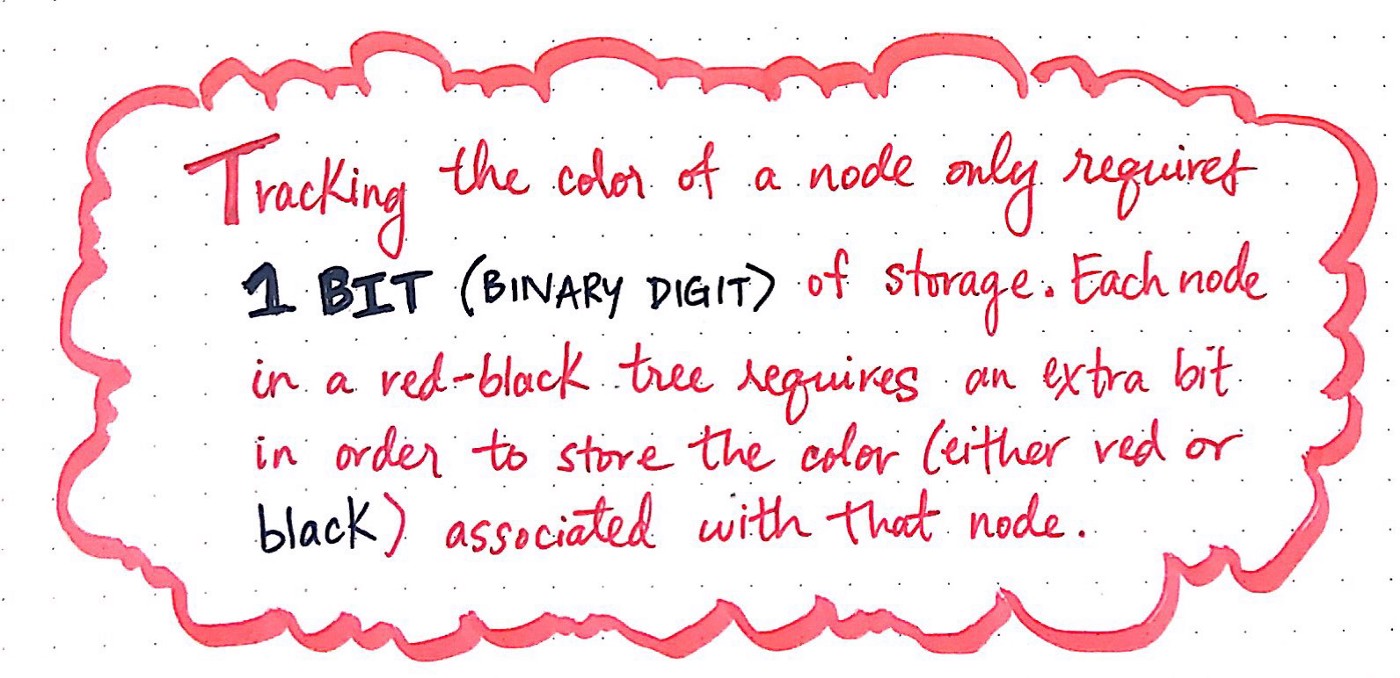 Tracking the color of a node only requires
1 BIT (BINARY DIGIT) of storage. Each node
in a red-black tree requires an extra bit
in order to store the color (either red or
black) associated with that node.